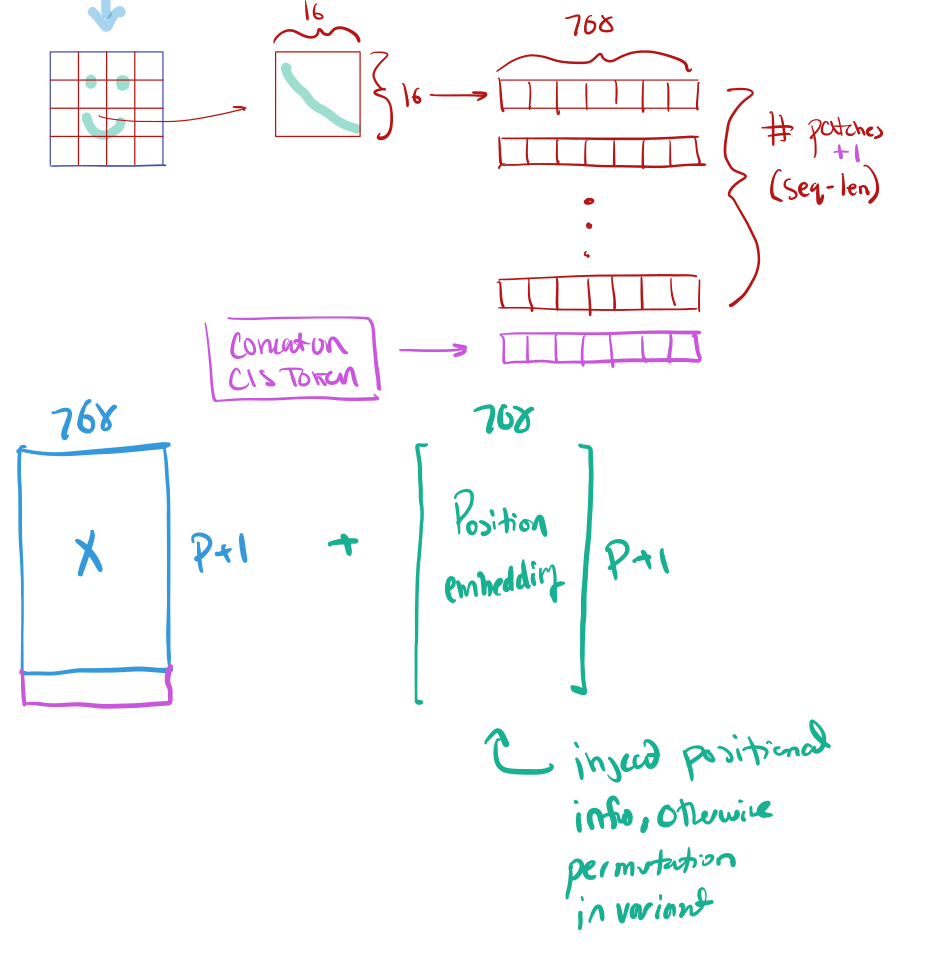 16
768
16
# patches
+1
(seq-len)
Concat on
CIS Token
768
768
X
P+1
+
Position
embedding
P+1
inject positional
info, otherwise
permutation
invariant